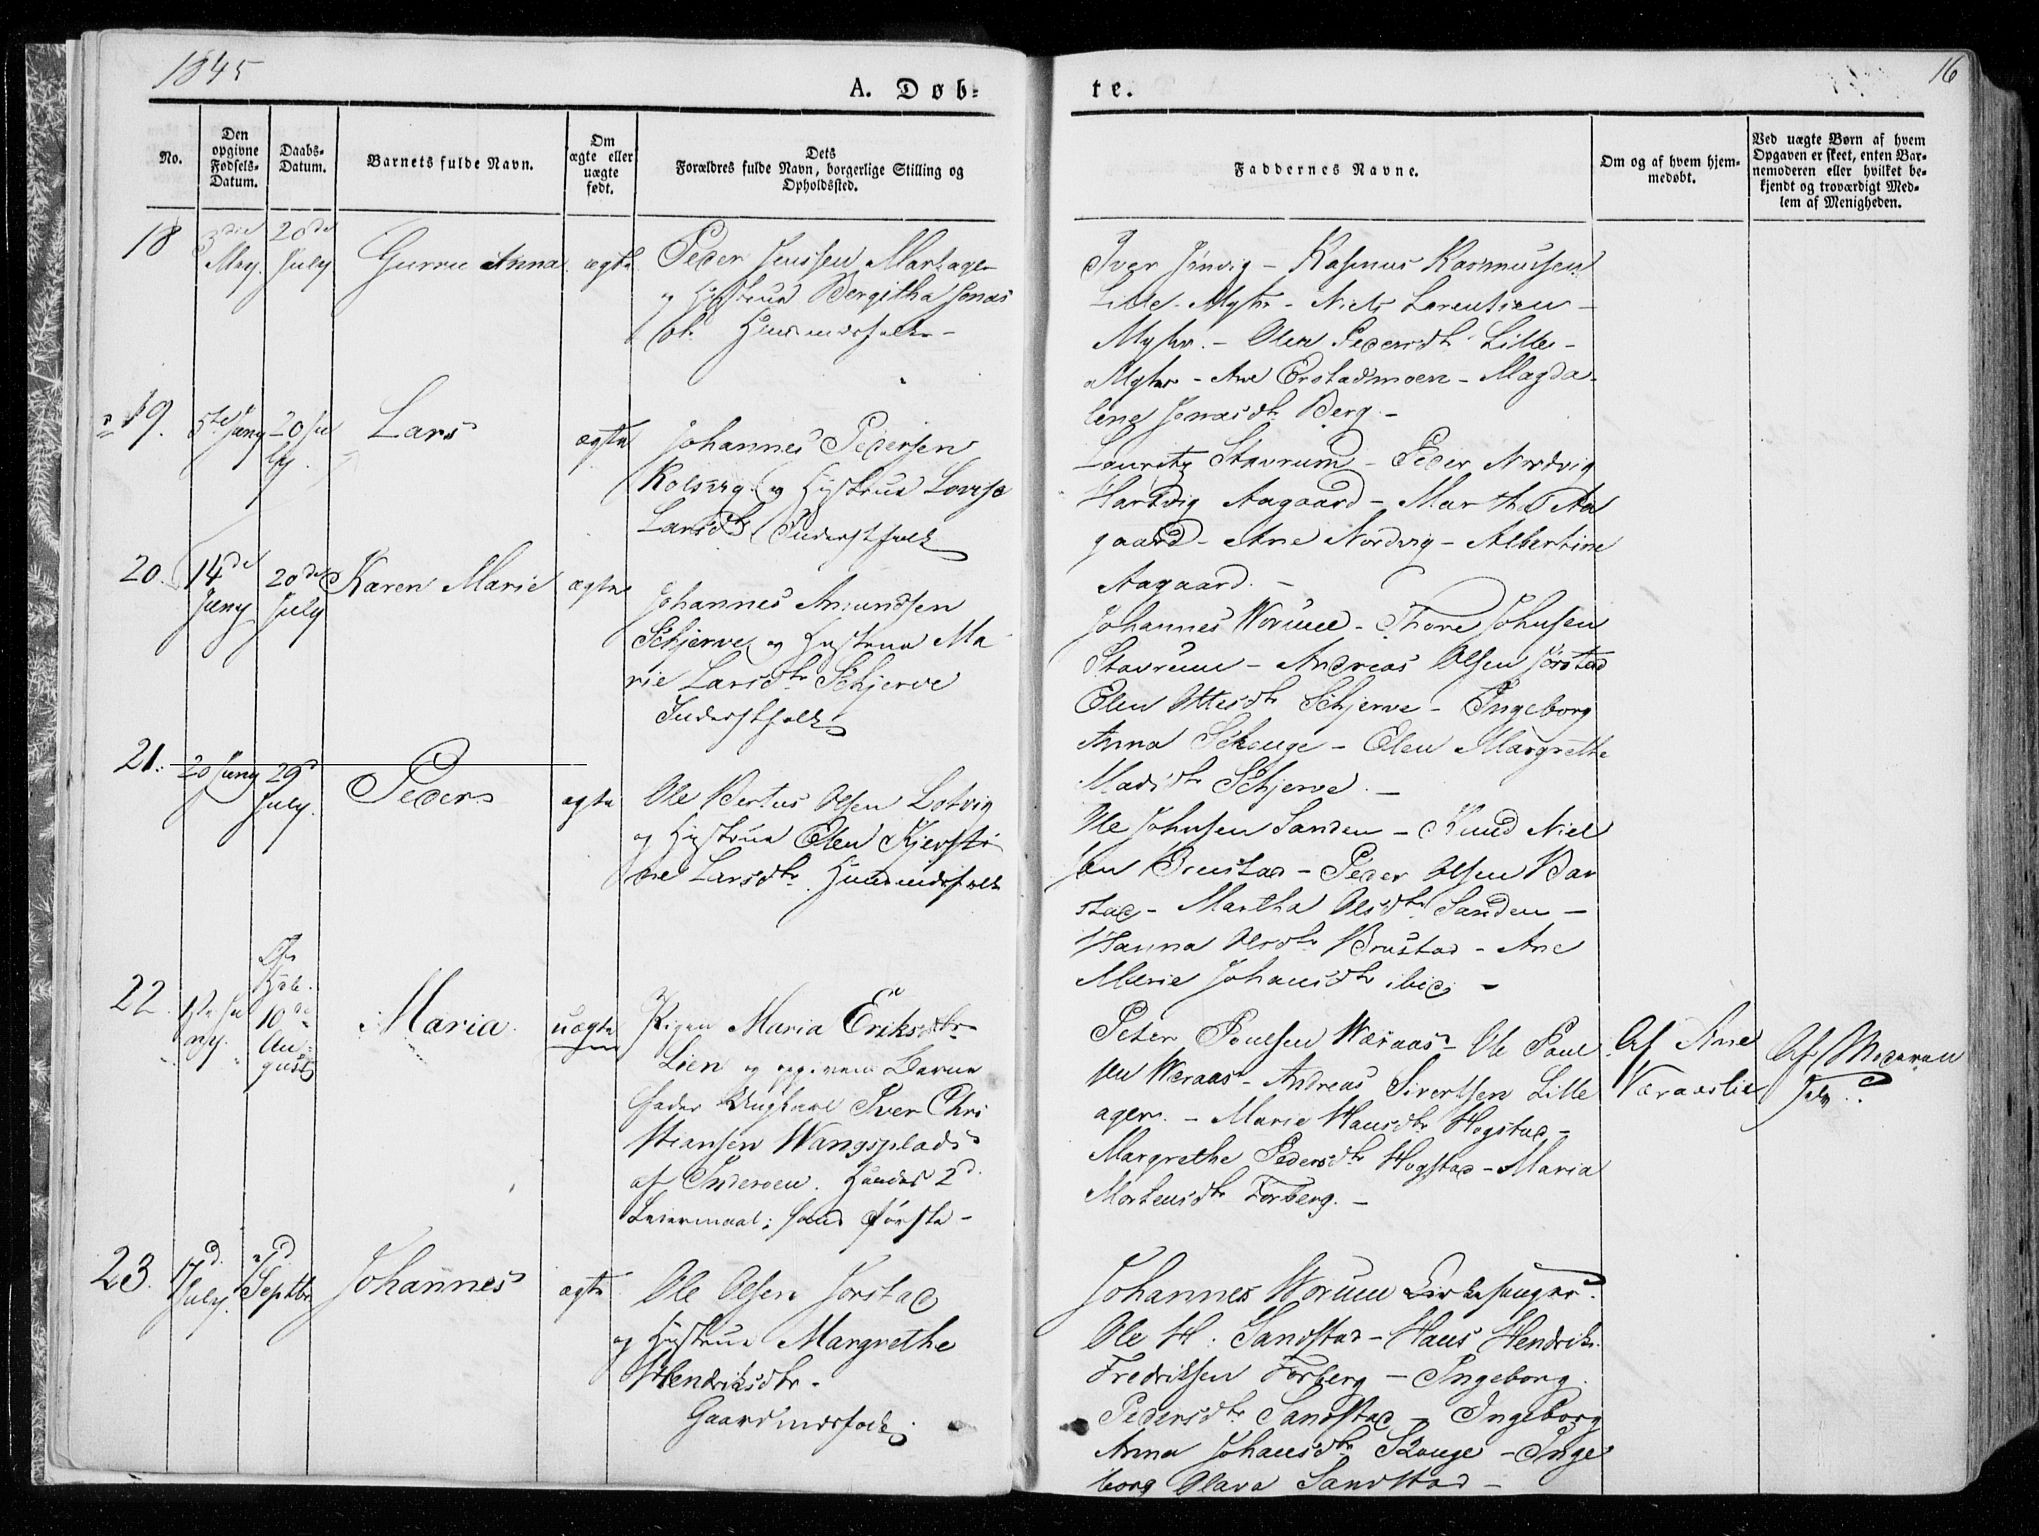 1845
16
A. Døb-
te.
No.
Den
opgivne
Fødsels-
Datum.
Daabs-
Datum.
Barnets fulde Navn.
Om
ægte eller
uægte
født.
Dets
Forældres fulde Navn, borgerlige Stilling og
Opholdssted.
Faddernes Navne.
Om og af hvem hjem-
medøbt.
Ved uægte Børn af hvem
Opgaven er skeet, enten Bar-
nemoderen eller hvilket be-
kjendt og troværdigt Med-
lem af Menigheden.
18
3die
May.
20de
July
Gurru Anna
ægte
Peder Jenssen
og Hustrue Bergitha Jonas
dtr Husmandsfolk -
Iver - Rasmus Rasmussen
Lille - Niels Lorentsen -
Olea Pedersdtr Lille -
Ane Erstadmoen - Magda-
lena Jonasdtr Berg. -
19.
5te Juny
20 Ju
ly.
Lars
ægte
Johannes Pedersen
Kolsvig og Hustrue Lovise
Larsdtr Inderstfolk
Lauritz Stavrum - Peder Nordvig
Hartvig Aagaard - Martha Aa
gaard - Ane Nordvig - Albertine
Aagaard. -
20.
14de
Juny
20de
July
Karen Marie
ægte
Johannes Amundsen
Schjerve og Hustrue Ma-
rie Larsdtr Schjerve
Inderstfolk
Johannes Worum - Thore Johnsen
Stavrum - Andreas Olsen Jørstad
Elen Ottesdtr Schjerve - Ingeborg
Anna Schauge - Elen Margrethe
Madsdtr Schjerve. -
21.
20 Juny
29d
July.
Peder
ægte
Ole Bertus Olsen Lotvig
og Hustrue Elen Kjersti
ne Larsdtr. Husmandsfolk
Ole Johnsen Sanden - Knud Niel
sen Brustad - Peder Olsen Bar
stad - Martha Olsdtr Sanden -
Hanna Olsdtr Brustad - Ane
Marie Johansdtr ibid -
22
Juny.
10de
Au-
gust
Maria.
uægte
Pigen Maria Eriksdtr
Lien og opgiven Barne
fader Ungkarl Iver Chri
stiansen Wangsplads
af Inderøen. Hendes 2d.
Leiermaal; hans første -
Peter Poulsen Wæraas - Ole Paul
sen Wæraas - Andreas Sivertsen Lille
ager. - Marie Hansdtr Hogstad -
Margrethe Pedersdtr Hogstad - Maria
Mortensdtr Forberg. -
Af Ane
Væraaslie
Af Moderen
selv.
23.
17d.
July.
7d.
Septbr
Johannes
ægte
Ole Olsen Jørstad
og Hustrue Margrethe
Hendriksdtr.
Gaardmandsfolk.
Johannes Worum Kirkesanger.
Ole H. Sandstad - Hans Hendrik
Fredriksen Forberg - Ingeborg
Pedersdtr Sandstad - Ingeborg
Anna Johansdtr Skauge - Inge
borg Olava Sandstad -